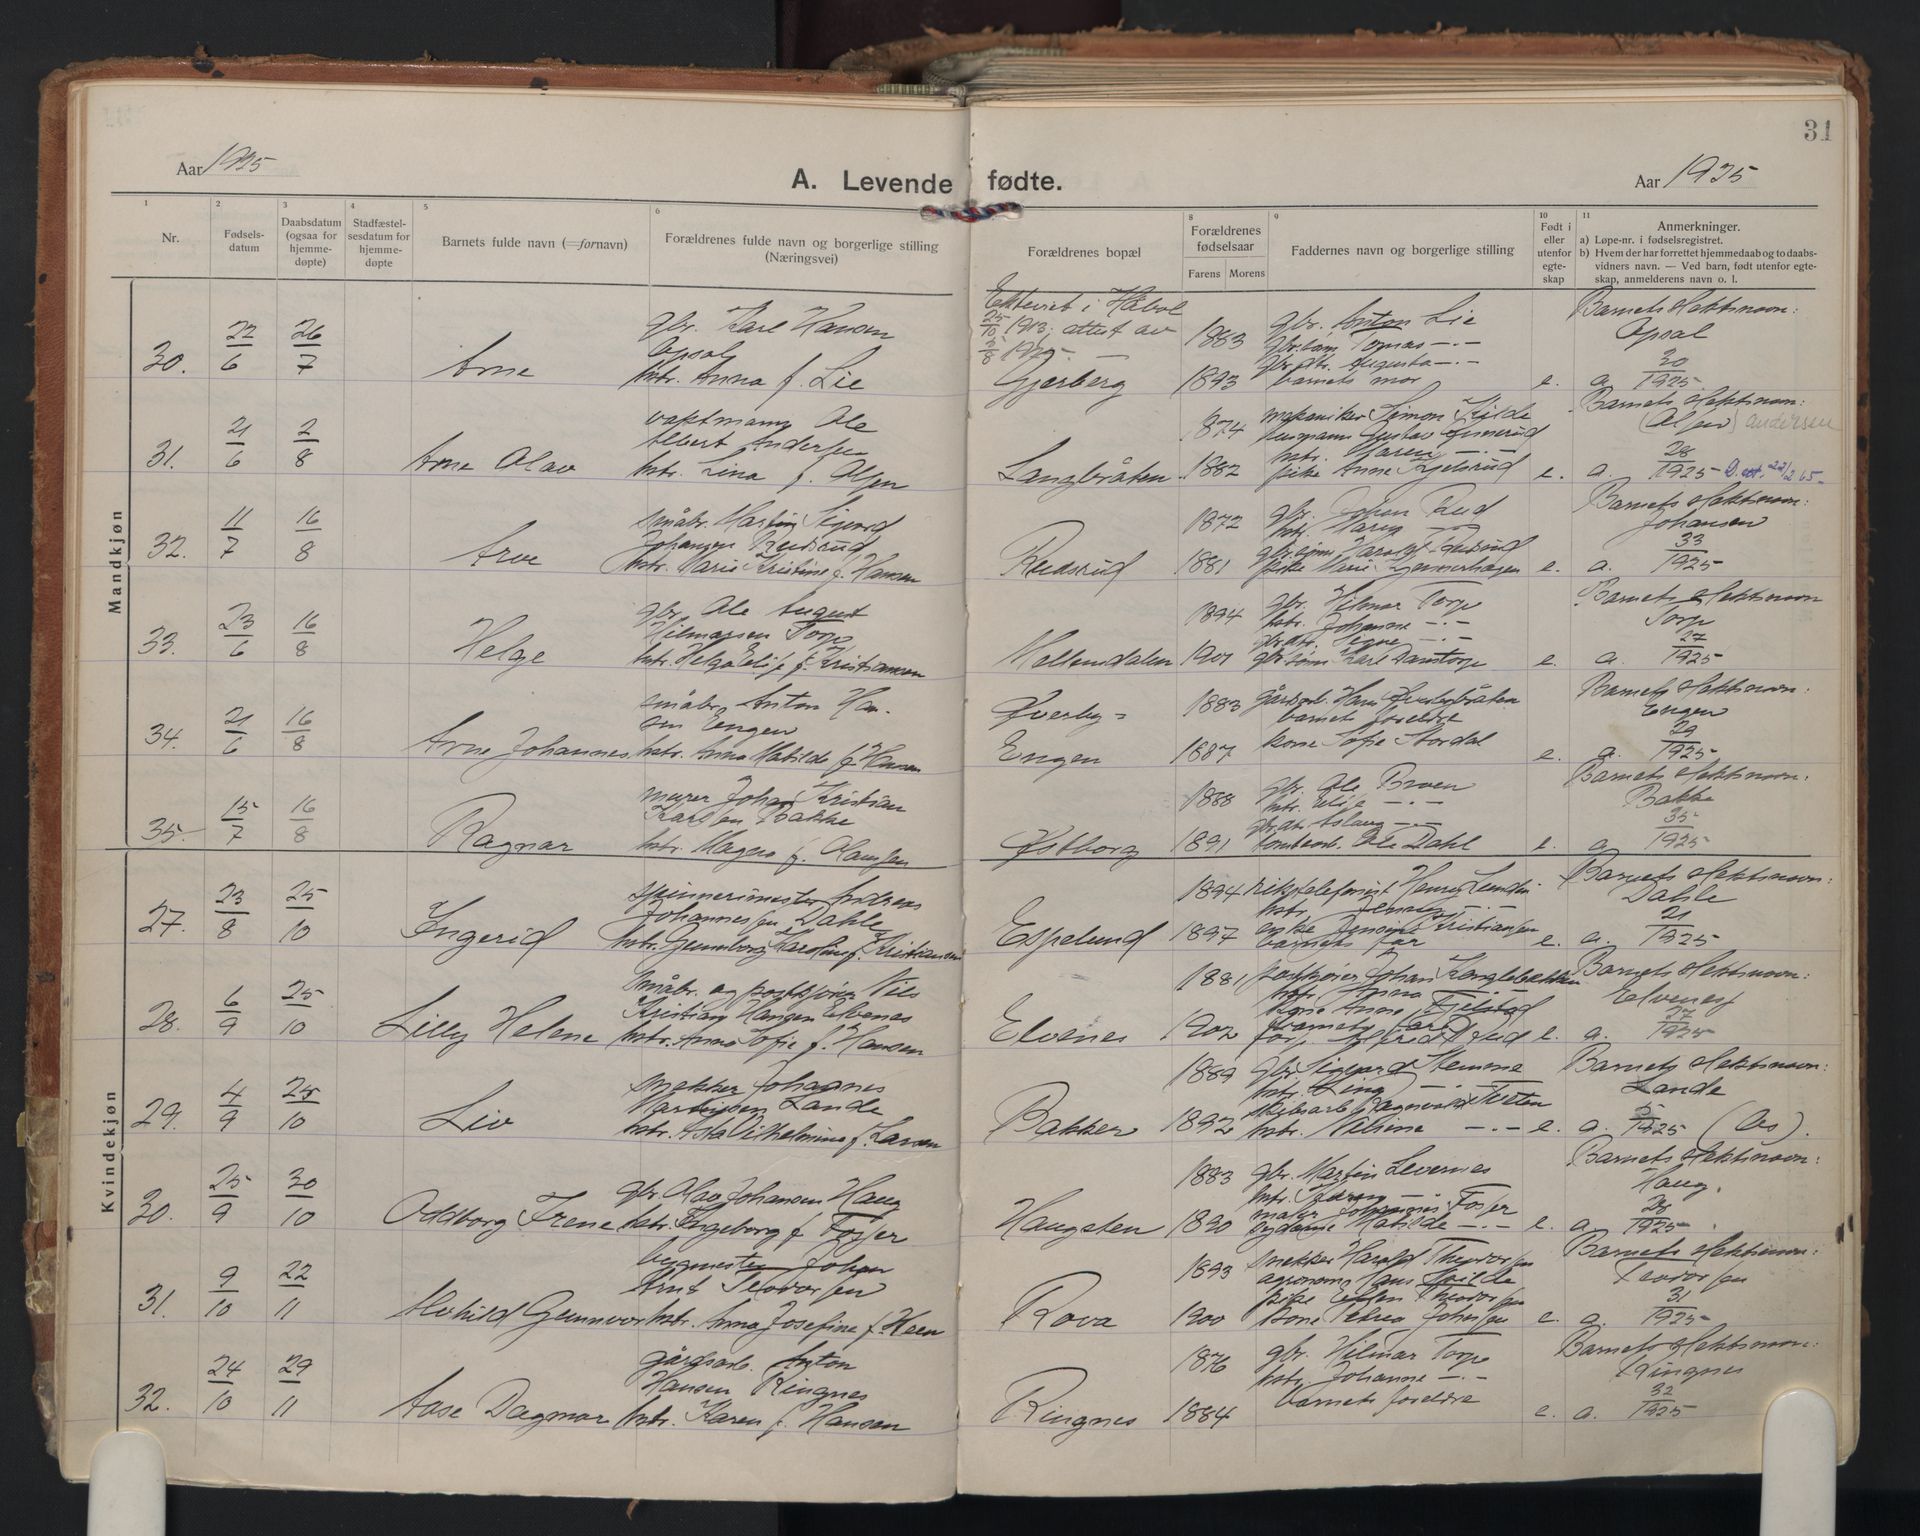 31
Aar 1925
A. Levende fødte.
Aar 1925
1
2
3
4
5
6
8
9
10
11
Nr.
Fødsels-
datum
Daabsdatum
(ogsaa for
hjemme-
døpte)
Stadfæstel-
sesdatum for
hjemme-
døpte
Barnets fulde navn (=fornavn)
Forældrenes fulde navn og borgerlige stilling
(Næringsvei)
Forældrenes bopæl
Forældrenes
fødselsaar
Farens Morens
Faddernes navn og borgerlige stilling
Født i
eller
utenfor
egte-
skap
Anmerkninger.
a) Løpe-nr. i fødselsregistret.
b) Hvem der har forrettet hjemmedaab og to daabs-
vidners navn. — Ved barn, født utenfor egte-
skap, anmelderens navn o. l.
Mandkjøn
30.
22/6
26/7
Arne
gbr. Karl Hansen
Opsal
hstr. Anna f. Lie
Ekteviet i Håbøl
25/10 1913; attest av
5/8 1925.
Gjerberg
1883
1893
gbr. Anton Lie
Tomas -.-
Augusta -.-
barnets mor
e.
Barnets slektsnavn:
Opsal
a. 30/1925.
31.
21/6
2/8
Arne Olav
vaktmann Ole
Albert Andersen
hstr. Lina f. Olsen
Langbråten
1874
1882
Simon Kjilde
Gustav
hstr. Maren -.-
pike Anne Kjelsrud
e.
Barnets slektsnavn:
(Olsen) Andersen
a. 28/1925
32.
11/7
16/8
Arve
småbr. Martin Sigurd
Johansen Reudsrud
hstr. Marie Kristine f. Hansen
Reudsrud
1872
1881
gbr. Johan Rud
hstr. Maren -.-
gbr.sønn Harald
pike Marie
e.
Barnets slektsnavn:
Johansen
a. 33/1925
33.
23/6
16/8
Helge
gbr. Ole August
Hilmarsen Torp
hstr. Helga Elise f. Kristiansen
Mellemdalen
1894
1901
gbr. Hilmar Torp
hstr. Johanne -.-
gbr.dtr. Signe -.-
gbr.sønn Karl Damtorp
e.
Barnets slektsnavn
Torp
a. 27/1925
34.
21/6
16/8
Arne Johannes
småbr. Anton Han-
sen Engen
hstr. Anna Matilde f. Hansen
Øverby-
Engen
1883
1887
gårdsarb. Hans
barnets foreldre
kone Sofie Stordal
e.
Barnets slektsnavn:
Engen
a. 29/1925
35.
15/7
16/8
Ragnar
murer Johan Kristian
Karlsen Bakke
hstr. Magna f. Olausen
Østborg
1888
1891
gbr. Ole Broen
hstr. Elise -.-
gbr.dtr. Aslaug -.-
Ole Dahl
e.
Barnets slektsnavn:
Bakke
a. 35/1925
Kvindekjøn
27.
23/8
25/10
Ingerid
spinnerimester Andreas
Johannessen Dahle
hstr. Gunnborg Karoline f. Kristiansen
Espelund
1894
1897
rikstelefonist Henry
hstr. Jenny -.-
Jensine Kristiansen
barnets far
e.
Barnets slektsnavn:
Dahle
a. 21/1925
28.
6/9
25/10
Lilly Helene
Småbr. og postkjører Nils
Kristian Hansen Elvenes
hstr. Anna Sofie f. Hansen
Elvenes
1881
1902
postkjører Johan
hstr. Anna
kone Anne Fjelstad
barnets far
e.
Barnets slektsnavn:
Elvenes
a. 27/1925
29.
4/9
25/10
Liv
snekker Johannes
Martinsen Lande
hstr. Asta Vilhelmine f. Larsen
Bakker
1889
1892
gbr. Sigurd Stemme
hstr. Lina -.-
Tveten
hstr. Nilsine -.-
e.
Barnets slektsnavn:
Lande
a. 5/1925 (Ås).
30.
25/9
30/10
Oddborg Irene
gbr. Olav Johansen Haug
hstr. Ingeborg f. Fosser
Haugsten
1883
1890
gbr. Martin Levernes
hstr. Karen -.-
maler Johannes Fosser
sydame Matilde -.-
e.
Barnets slektsnavn:
Haug.
a. 28/1925
31.
9/10
22/11
Alvhild Gunnvor
bygmester Johan
Arnt Teodorsen
hstr. Anna Josefine f. Heen
Rova
1893
1900
snekker Harald Theodorsen
agronom Hans
pike Ellen Theodorsen
kone Petrea Johnsen
e.
Barnets slektsnavn:
Teodorsen
a. 31/1925
32.
24/10
29/11
Aase Dagmar
gårdsarb. Anton
Hansen Ringnes
hstr. Karen f. Hansen
Ringnes
1876
1884
gbr. Hilmar Torp
hstr. Johanne -.-
barnets foreldre
e.
Barnets slektsnavn:
Ringnes
a. 32/1925